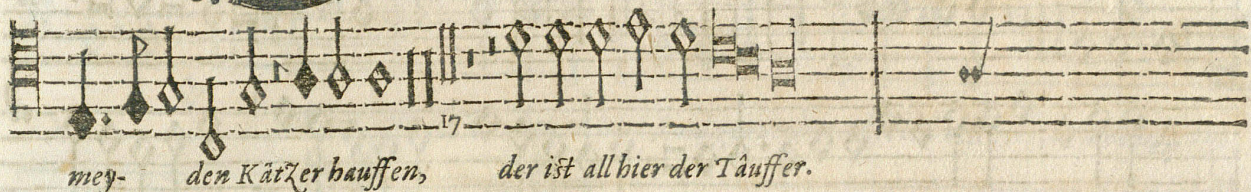 17
mey- den Kätzer hauffen, der ist all hier der Täuffer.